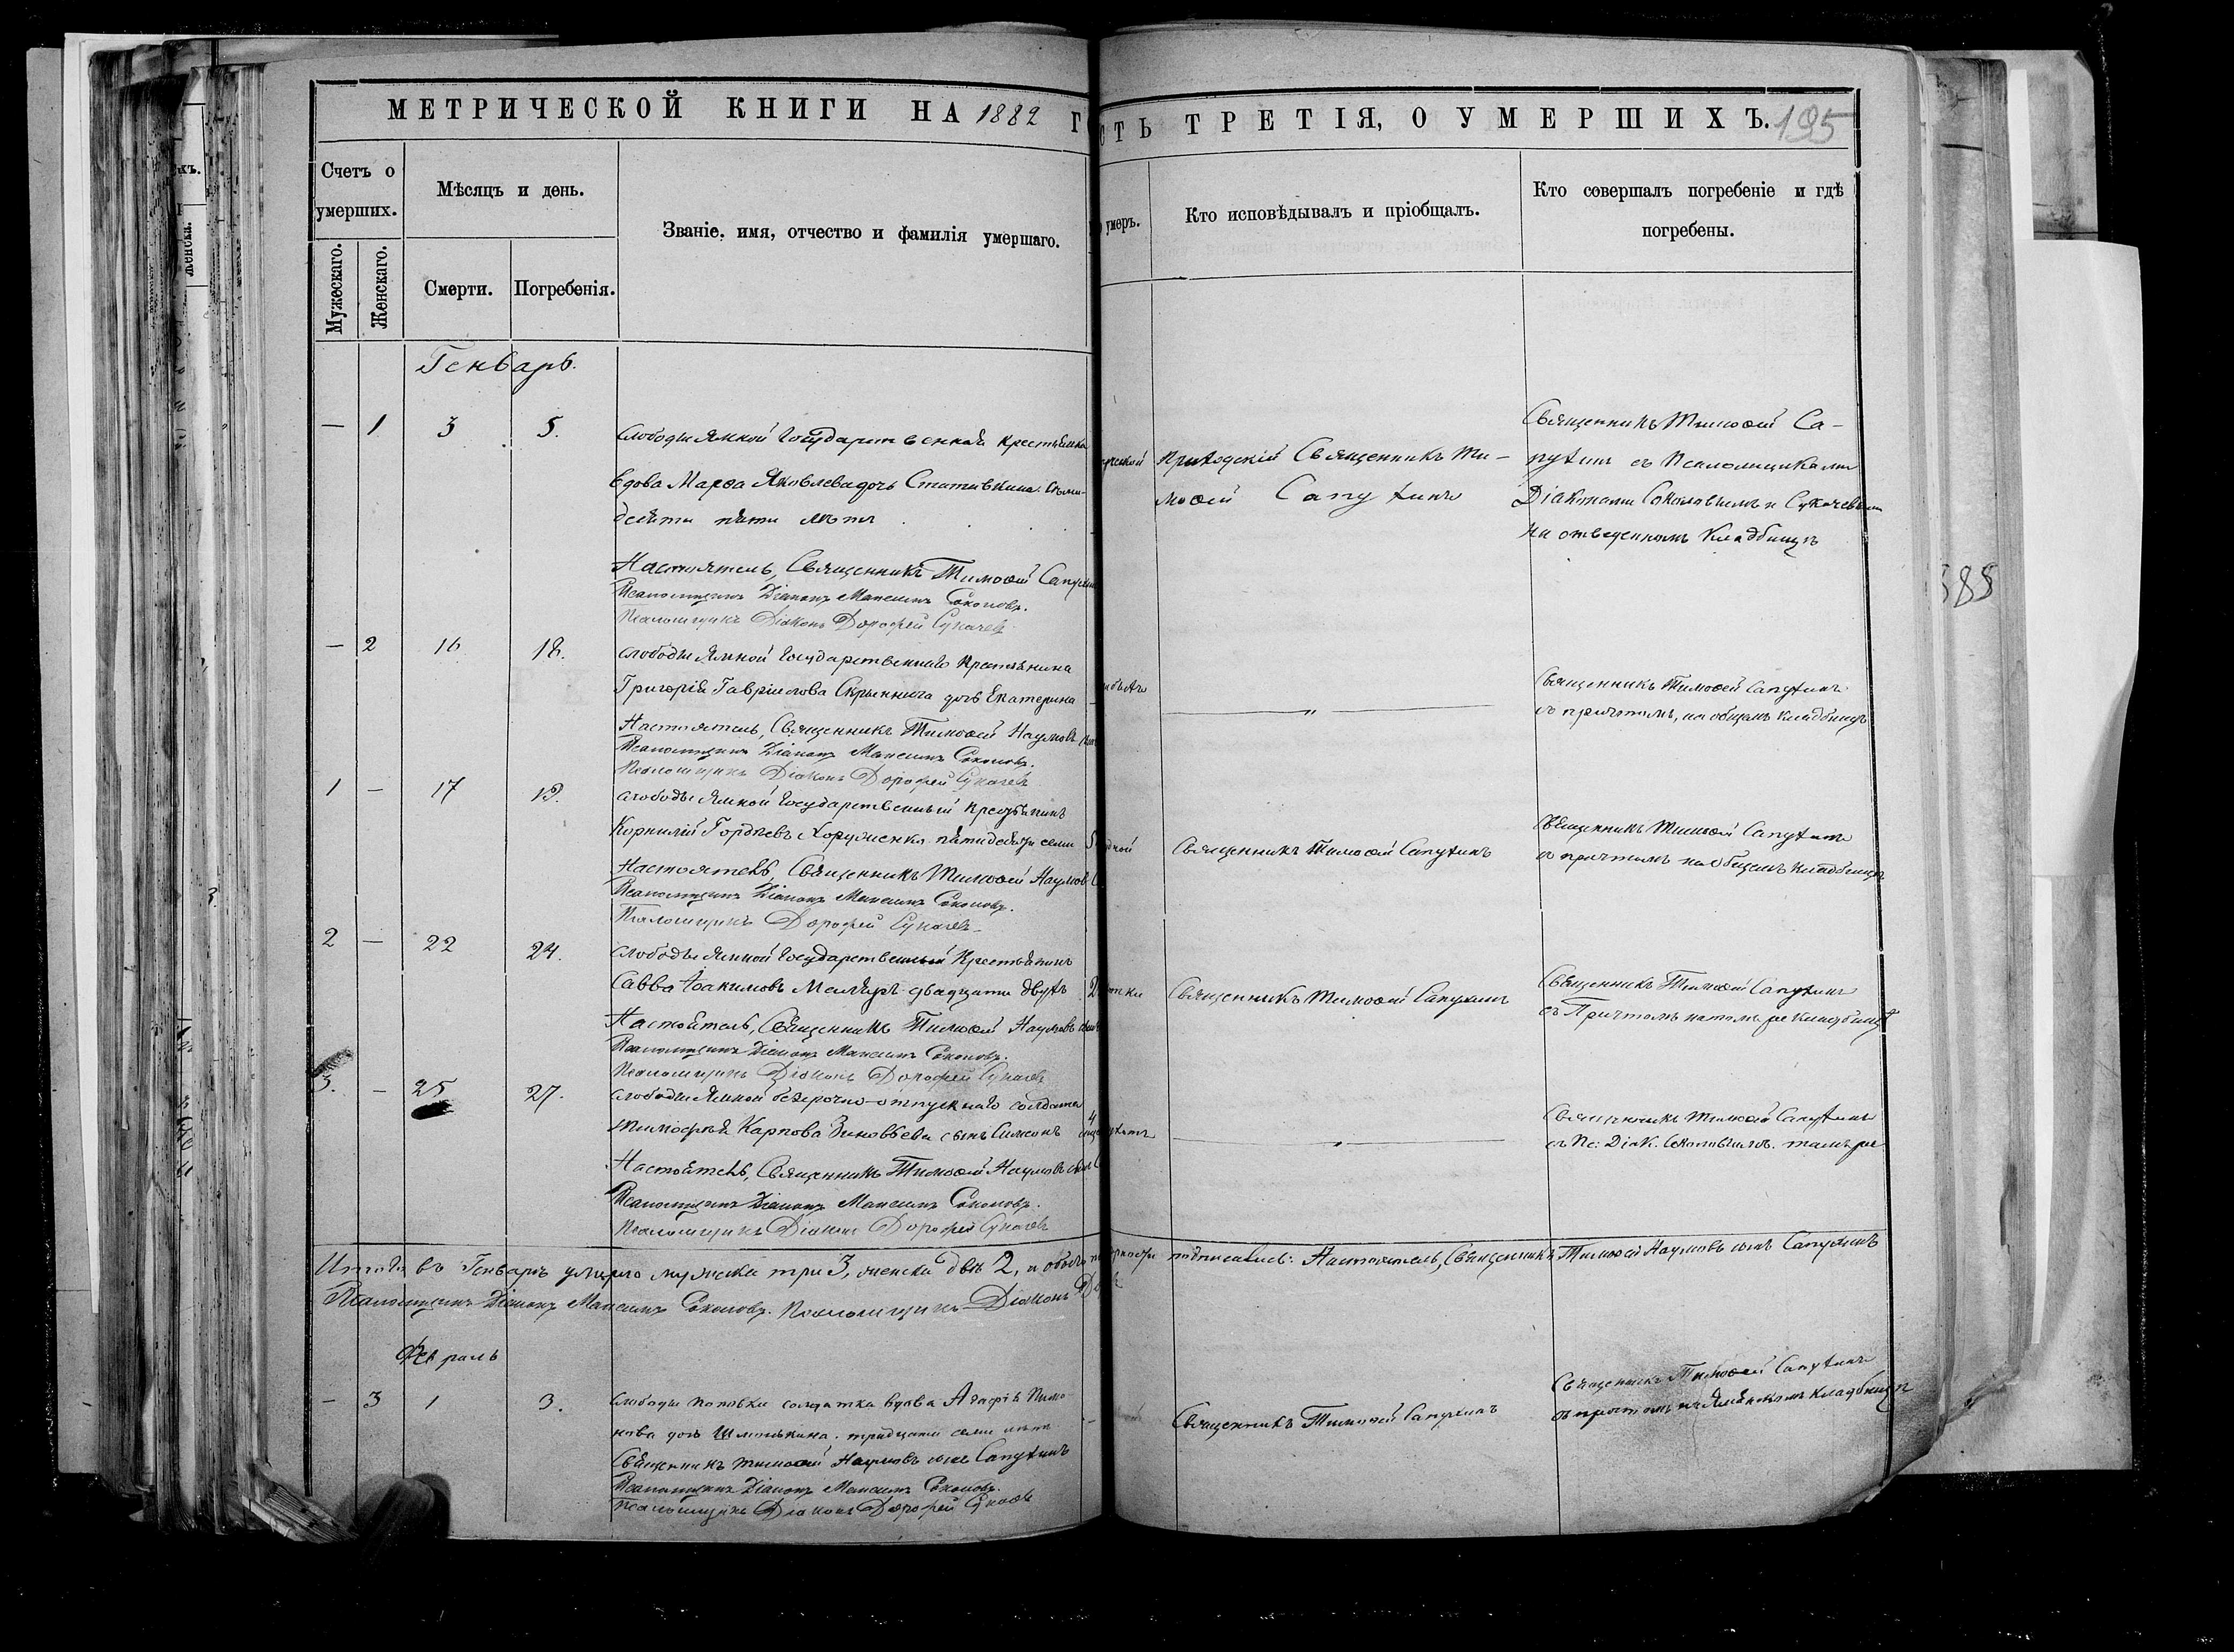 МЕТРИЧЕСКОЙ КНИГИ НА 1882 Г
СТЬ ТРЕТІЯ, О УМЕРШИХЪ. 195
Счетъ о умершихъ.
Мужескаго.
Женскаго.
Мѣсяцъ и день.
Смерти.
Погребенія.
Званіе, имя, отчество и фамилія умершаго.
умеръ.
Кто исповѣдывалъ и пріобщалъ.
Кто совершалъ погребеніе и гдѣ
погребены.
Генварь.
— 1 3 5.
слободы Ямной Государственная крестьянка
вдова Марѳа Яковлева дочь
десяти пяти лѣтъ
Приходскій Священникъ Ти-
моѳей Сапухинъ
Священникъ Тимоѳей Са-
пухинъ съ Псаломщиками
Діаконами Соколовымъ и Сукачевымъ
на отведенномъ кладбищѣ
Настоятель, Священникъ Тимоѳей
Псаломщикъ Діаконъ Максимъ Соколовъ.
Псаломщикъ Діаконъ Дорофей Сукачевъ
— 2 16 18.
слободы Ямной Государственнаго крестьянина
Григорія Гавріилова дочь Екатерина
— „ —
Священникъ Тимоѳей Сапухинъ
съ причтомъ, на общемъ кладбищѣ
Настоятель, Священникъ Тимоѳей Наумовъ
Псаломщикъ Діаконъ Максимъ Соколовъ.
Псаломщикъ Діаконъ Дорофей Сукачевъ
1 — 17 19.
слободы Ямной Государственный крестьянинъ
Корнилій Гордѣевъ пятидесяти семи
Священникъ Тимоѳей Сапухинъ
Священникъ Тимоѳей Сапухинъ
съ причтомъ на общемъ кладбищѣ
Настоятель, Священникъ Тимоѳей Наумовъ
Псаломщикъ Діаконъ Максимъ Соколовъ.
Псаломщикъ Дорофей Сукачевъ
2 — 22 24.
слободы Ямной Государственный крестьянинъ
Савва Іоакимовъ двадцати двухъ
Священникъ Тимоѳей Сапухинъ
Священникъ Тимоѳей Сапухинъ
съ Причтомъ на томъ же кладбищѣ
Настоятель, Священникъ Тимоѳей Наумовъ
Псаломщикъ Діаконъ Максимъ Соколовъ.
Псаломщикъ Діаконъ Дорофей Сукачевъ
3. — 25 27.
слободы Ямной безсрочно-отпускнаго солдата
Тимофѣя Карпова Зиновьева сынъ Симеонъ
— „ —
Священникъ Тимоѳей Сапухинъ
съ Пс: Діак. Соколовымъ. тамъ же
Настоятель, Священникъ Тимоѳей Наумовъ
Псаломщикъ Діаконъ Максимъ Соколовъ.
Псаломщикъ Діаконъ Дорофей Сукачевъ
Итого въ Генварѣ умерло мужеска три 3, женска двѣ 2, а обоего подписались: Настоятель, Священникъ Тимоѳей Наумовъ сынъ Сапухинъ
Псаломщикъ Діаконъ Максимъ Соколовъ. Псаломщикъ Діаконъ
Февраль
— 3 1 3.
слободы Поповки солдатка вдова Агафія
нова дочь тридцати семи лѣтъ
Священникъ Тимоѳей Сапухинъ
Священникъ Тимоѳей Сапухинъ
съ причтомъ на Ямномъ кладбищѣ
Священникъ Тимоѳей Наумовъ сынъ Сапухинъ
Псаломщикъ Діаконъ Максимъ Соколовъ.
Псаломщикъ Діаконъ Дорофей Сукачевъ